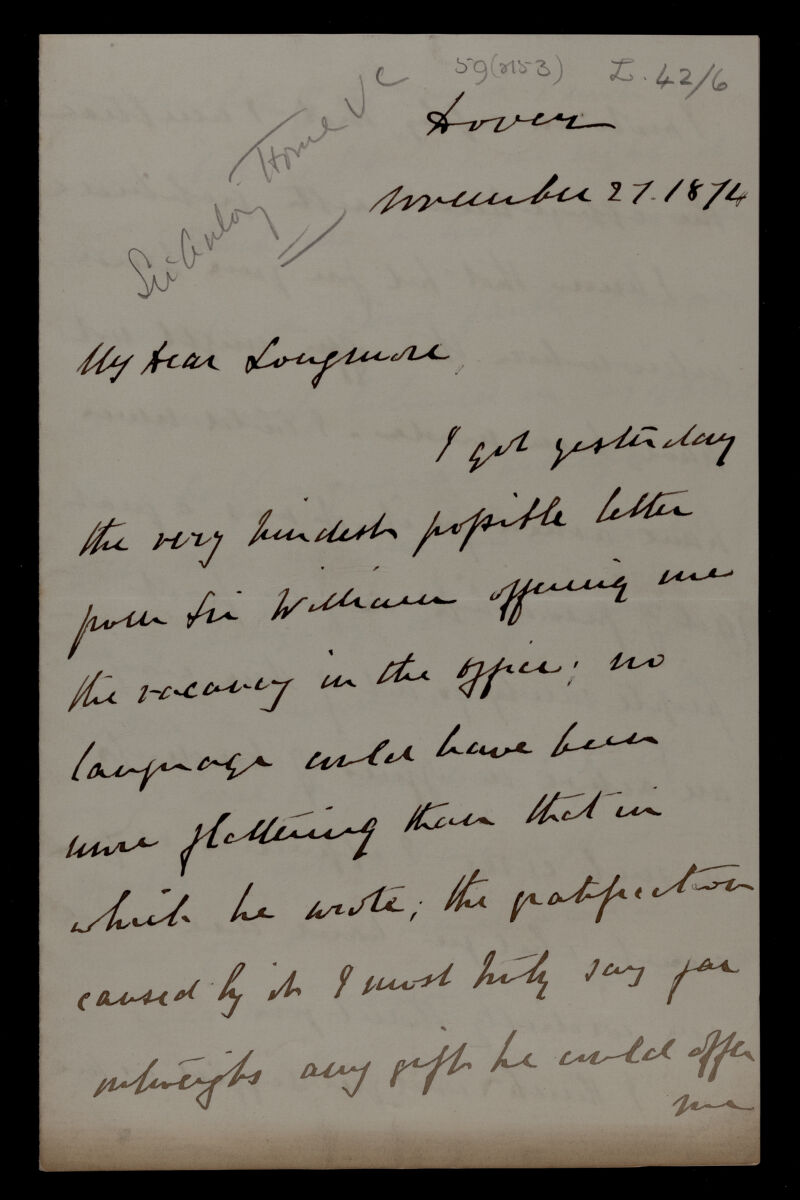 59(2153)
L. 42/6
Sir Antony Home VC
Dover
November 27. 1874
My Dear Longmore,
I got yesterday
the very kindest possible letter
from Sir William offering me
the vacancy in the office; no
language could have been
more flattering than that in
which he wrote; the gratification
caused by it I most truly say far
outweighs any gift he could offer
me